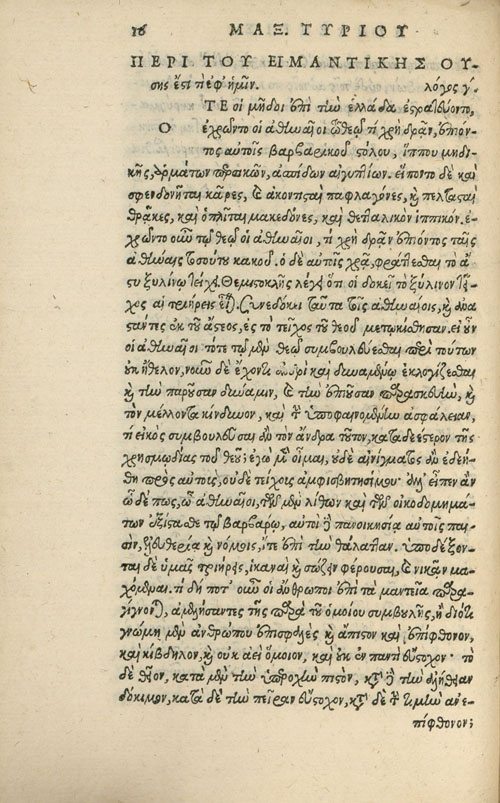 16 ΜΑΞ. ΤΥΡΙΟΥ
ΠΕΡΙ ΤΟΥ ΕΙ ΜΑΝΤΙΚΗΣ ΟΥ-
σης ἔστι τὶ ἐφ' ἡμῖν. λόγος γ'.
ΤΕ οἱ μῆδοι ἐπὶ τὴν ἑλλάδα ἐστρατεύοντο,
Ο ἐχρῶντο οἱ ἀθηναῖοι τῷ θεῷ τί χρὴ δρᾶν, ἐπιόν-
τος αὐτοῖς βαρβαρικοῦ στόλου, ἵππου μηδι-
κῆς, ἁρμάτων περσικῶν, ἀσπίδων αἰγυπτίων. εἵποντο δὲ καὶ
σφενδονῆται κᾶρες, καὶ ἀκοντισταὶ παφλαγόνες, καὶ πελτασταὶ
θρᾷκες, καὶ ὁπλῖται μακεδόνες, καὶ θετταλικὸν ἱππικόν. ἐ-
χρῶντο οὖν τῷ θεῷ οἱ ἀθηναῖοι, τί χρὴ δρᾶν ἐπιόντος ταῖς
ἀθήναις τοσούτου κακοῦ. ὁ δὲ αὐτοῖς χρᾷ, φράττεσθαι τὸ ἄ-
στυ ξυλίνῳ τείχει. Θεμιστοκλῆς λέγει ὅτι οἱ δοκεῖ τὸ ξύλινον τεῖ-
χος αἱ τριήρεις εἶναι. Συνεδόκει ταῦτα τοῖς ἀθηναίοις, καὶ ἀνα
στάντες ἐκ τοῦ ἄστεος, ἐς τὸ τεῖχος τοῦ θεοῦ μετῳκίσθησαν. εἰ οὖν
οἱ ἀθηναῖοι τότε τῷ μὲν θεῷ συμβουλεύεσθαι περὶ τούτων
οὐκ ἤθελον, νοῦν δὲ ἔχοντι ἀνδρὶ καὶ δυναμένῳ ἐκλογίζεσθαι
καὶ τὴν παροῦσαν δύναμιν, καὶ τὴν ἐπιοῦσαν παρασκευὴν, καὶ
τὸν μέλλοντα κίνδυνον, καὶ τὴν ὑποφαινομένην ἀσφάλειαν,
τί εἰκὸς συμβουλεῦσαι ἂν τὸν ἄνδρα τοῦτον, καταδεέστερον τῆς
χρησμῳδίας τοῦ θεοῦ; ἐγὼ μὲν οἶμαι, οὐδὲ αἰνίγματος ἂν ἐδεή-
θη πρὸς αὐτοὺς, οὐδὲ τείχους ἀμφισβητησίμου· ἀλλ' εἶπεν ἂν
ὧδέ πως, ὦ ἀθηναῖοι, τῶν μὲν λίθων καὶ τῶν οἰκοδομημά-
των ἐξίστασθε τῷ βαρβάρῳ, αὐτοὶ δὲ πανοικησίᾳ αὐτοῖς παι-
σὶν, ἐλευθερίᾳ καὶ νόμοις, ἴτε ἐπὶ τὴν θάλατταν. ὑποδέξον-
ται δὲ ὑμᾶς τριήρεις, ἱκαναὶ καὶ σώζειν φέρουσαι, καὶ νικᾶν μα-
χόμεναι. τί δή ποτ' οὖν οἱ ἄνθρωποι ἐπὶ τὰ μαντεῖα παρα-
γίγνονται, ἀμελήσαντες τῆς παρὰ τοῦ ὁμοίου συμβουλῆς, ἢ διότι
γνώμη μὲν ἀνθρώπου ἐπισφαλὲς καὶ ἄπιστον καὶ ἐπίφθονον,
καὶ κίβδηλον, καὶ οὐκ ἀεὶ ὅμοιον, καὶ οὐκ ἐν παντὶ εὔστοχον· τὸ
δὲ θεῖον, κατὰ μὲν τὴν ὑπεροχὴν πιστὸν, κατὰ δὲ τὴν ἀλήθειαν
δόκιμον, κατὰ δὲ τὴν πεῖραν εὔστοχον, κατὰ δὲ τὴν τιμὴν ἀνε-
πίφθονον;